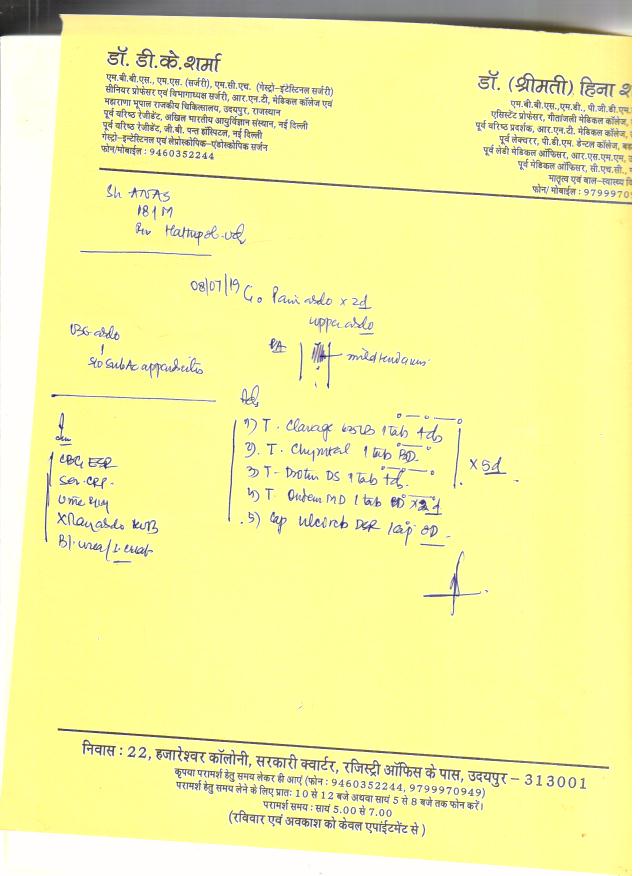 डॉ. डी.के.शर्मा
एम.बी.बी.एस., एम.एस. (सर्जरी), एम.सी.एच. (गेस्ट्रो-इंटेस्टिनल सर्जरी)
सीनियर प्रोफेसर एवं विभागाध्यक्ष सर्जरी, आर.एन.टी. मेडिकल कॉलेज एवं
महाराणा भूपाल राजकीय चिकित्सालय, उदयपुर, राजस्थान
पूर्व वरिष्ठ रेजीडेंट, अखिल भारतीय आयुर्विज्ञान संस्थान, नई दिल्ली
पूर्व वरिष्ठ रेजीडेंट, जी.बी. पन्त हॉस्पिटल, नई दिल्ली
गेस्ट्रो-इन्टेस्टिनल एवं लेप्रोस्कोपिक-एंडोस्कोपिक सर्जन
फोन/मोबाईल : 9460352244
डॉ. (श्रीमती) हिना
एम.बी.बी.एस., एम.डी., पी.जी.डी.एम.
एसिस्टेंट प्रोफेसर, गीतांजली मेडिकल कॉलेज,
पूर्व वरिष्ठ प्रदर्शक, आर.एन.टी. मेडिकल कॉलेज,
पूर्व लेक्चरर, पी.डी.एम. डेन्टल कॉलेज,
पूर्व लेडी मेडिकल ऑफिसर, आर.एस.एम.एम.
पूर्व मेडिकल ऑफिसर, सी.एच.सी.,
मातृत्व एवं बाल-स्वास्थ्य
फोन/मोबाईल : 97999709
Sh ANAS
18 / M
Hattipol-
08/07/19 C/o Pain abdo x 2d
upper abdo
PA mild tenderness
USG-abdo
s/o SubAc appendicitis
Adv
1) T. Clavage 625 1 tab tds
2) T. Chymoral 1 tab BD
3) T- Drotin DS 1 tab td
4) T. Ondem MD 1 tab
5) Cap DSR 1 cap OD
x 5d
CBC, ESR
Ser. CRP
Urine
XRay abdo KUB
Bl. urea / S. creat
निवास : 22, हजारेश्वर कॉलोनी, सरकारी क्वार्टर, रजिस्ट्री ऑफिस के पास, उदयपुर – 313001
कृपया परामर्श हेतु समय लेकर ही आएं (फोन : 9460352244, 9799970949)
परामर्श हेतु समय लेने के लिए प्रातः 10 से 12 बजे अथवा सायं 5 से 8 बजे तक फोन करें।
परामर्श समय : सायं 5.00 से 7.00
(रविवार एवं अवकाश को केवल एपांईटमेंट से)